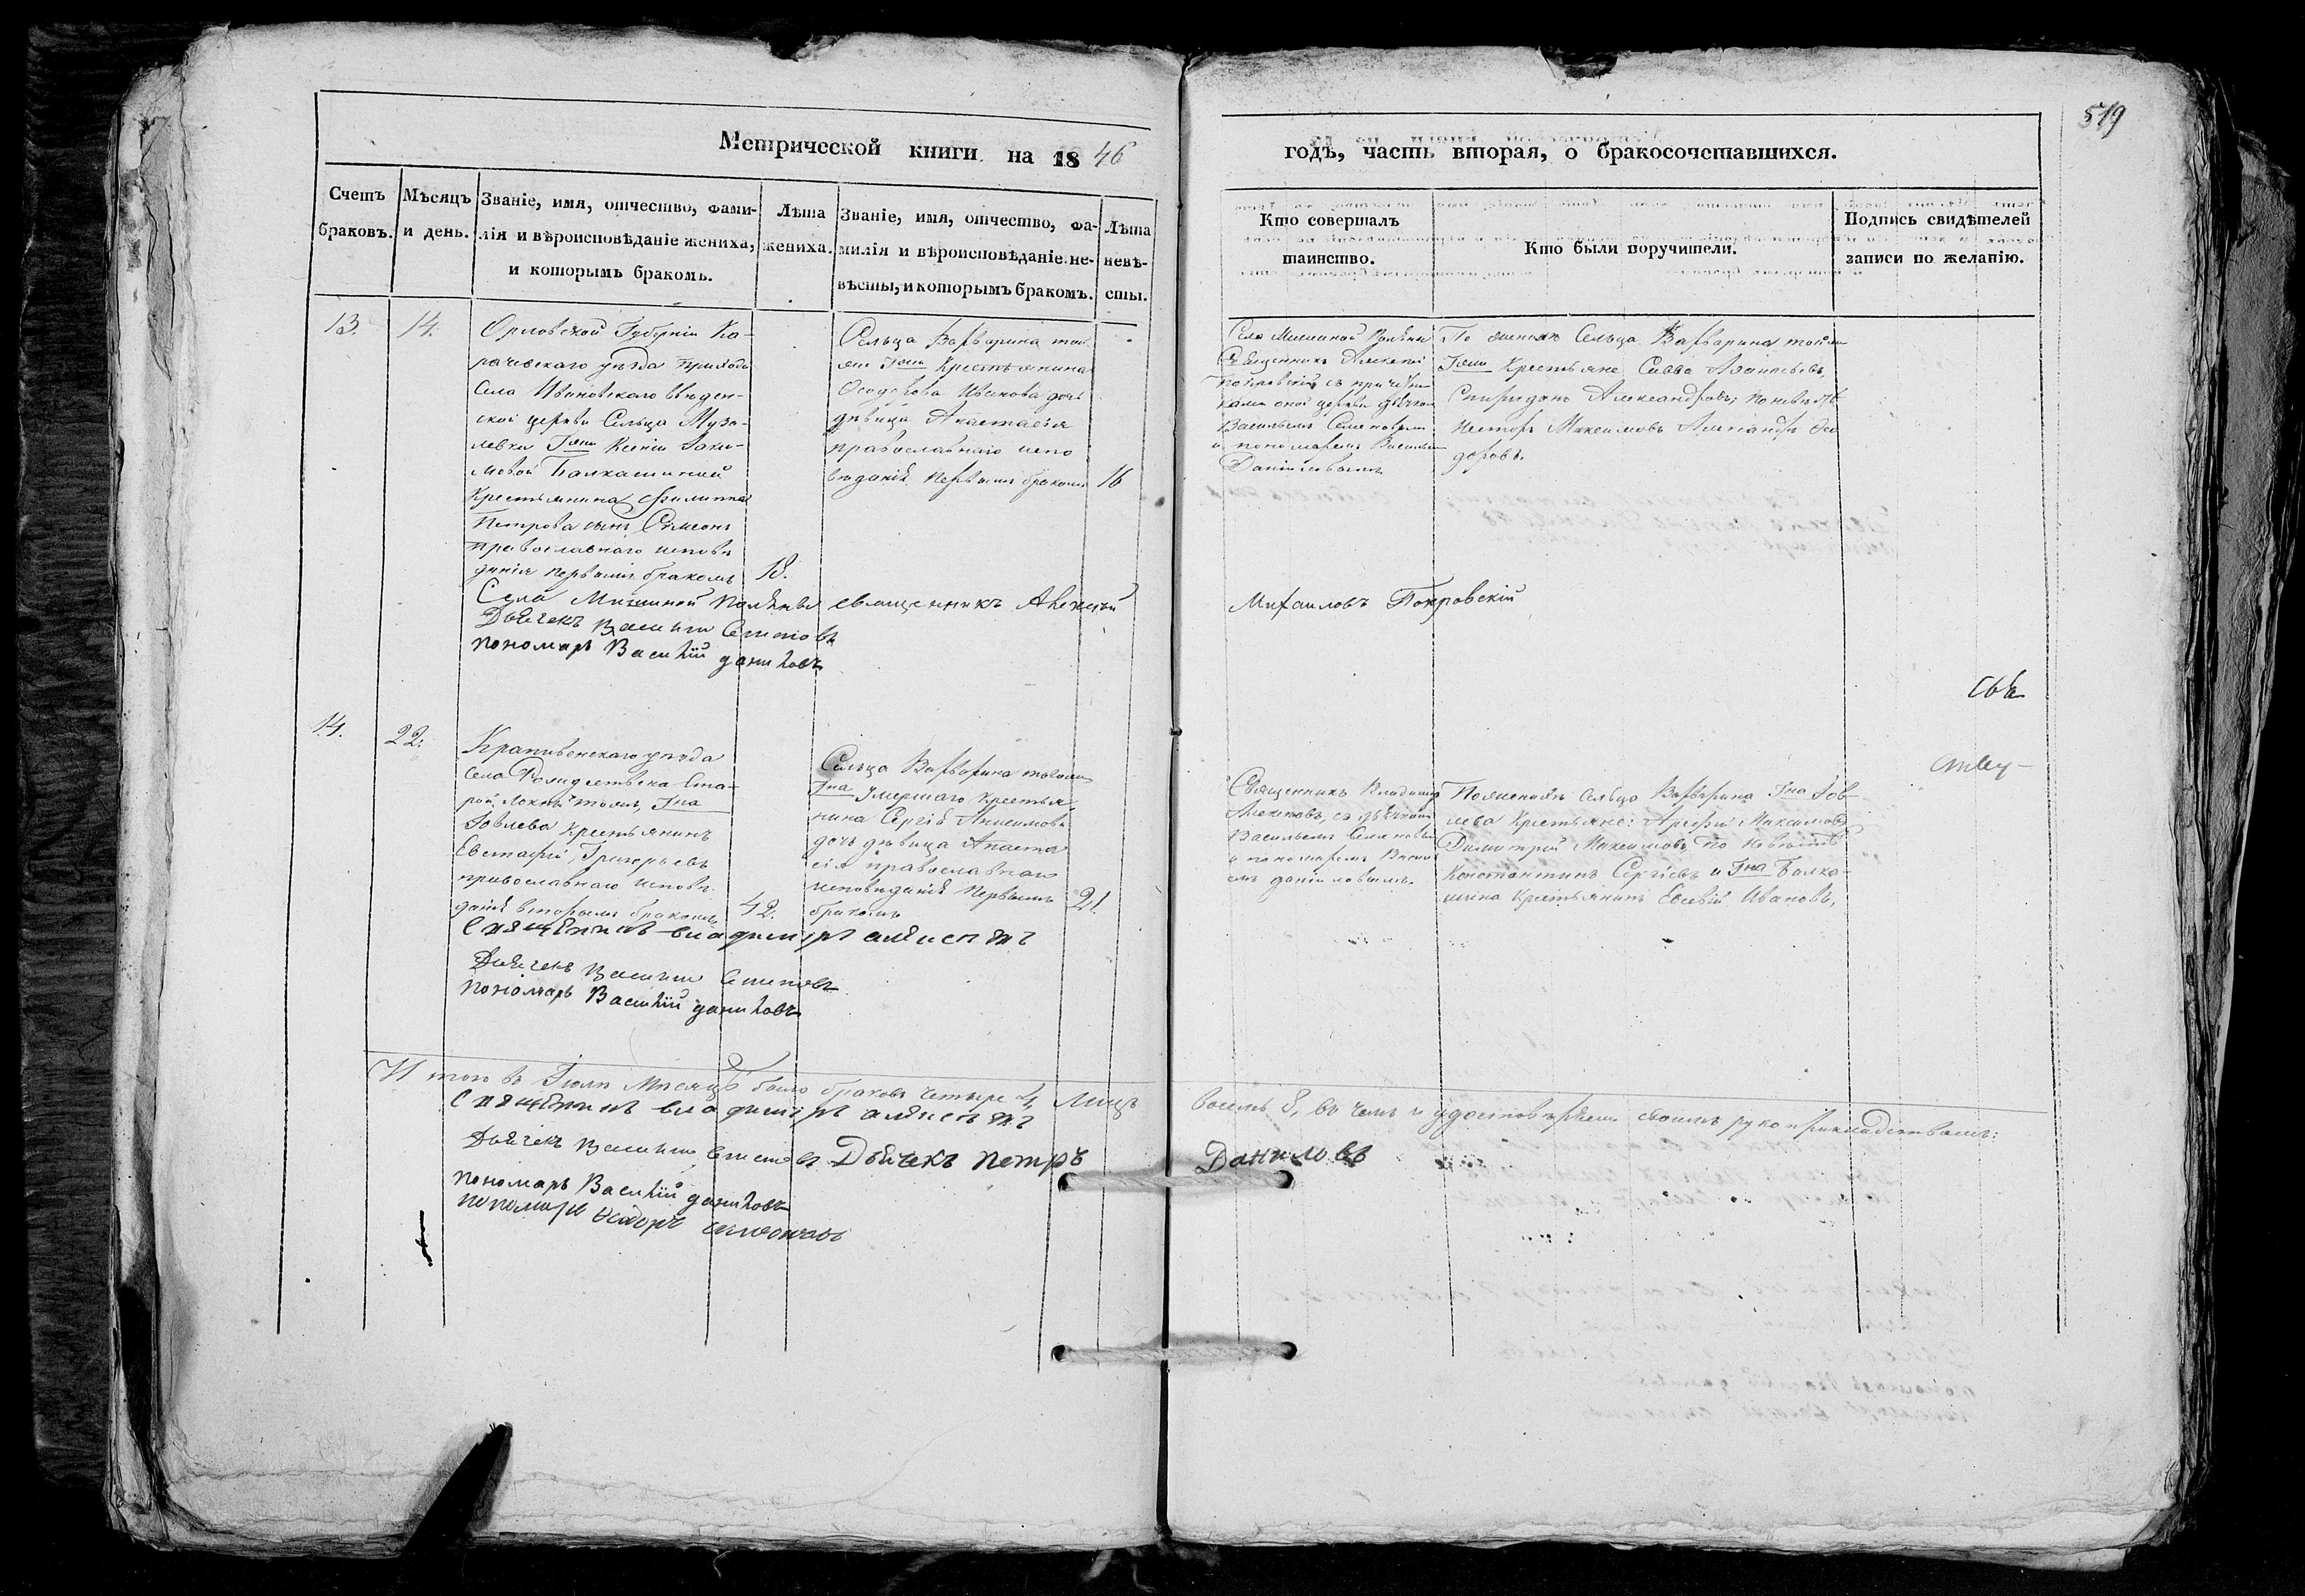 519
Метрической книги на 1846
годъ, часть вторая, о бракосочетавшихся.
Счетъ браковъ.
Мѣсяцъ и день.
Званіе, имя, отчество, фами-
лія и вѣроисповѣданіе жениха,
и которымъ бракомъ.
Лѣта
жениха.
Званіе, имя, отчество, фа-
милія и вѣроисповѣданіе не-
вѣсты, и которымъ бракомъ.
Лѣта
невѣ-
сты.
Кто совершалъ
таинство.
Кто были поручители.
Подпись свидѣтелей
записи по желанію.
13.
14.
Орловской Губерніи Ка-
рачевскаго уѣзда прихода
Села Ивановскаго введен-
ской церкви Сельца
Гжи Ксеніи
мовой Балкашиной
Крестьянина Филиппа
Петрова сынъ Симеонъ
православнаго исповѣ
данія первымъ бракомъ
18.
Сельца Варварина тоя
же Гжи Крестьянина
Ѳеодорова Иванова дочь
дѣвица Анастасія
православнаго испо
вѣданія первымъ бракомъ
16
Села Мишиной Поляны
Священникъ Алексей
Покровскій съ причетни
ками оной церкви дьячкомъ
Васильемъ Семеновымъ
и пономаремъ Васильемъ
Даниловымъ
По женихѣ Сельца Варварина тойже
Гжи Крестьяне Савва Аѳанасьевъ,
Спиридонъ Александровъ; по невѣстѣ
Несторъ Максимовъ Александръ Ѳео
доровъ.
Села Мишиной Поляны священникъ Алексѣй
Михаиловъ Покровскій
Дьячекъ Василий Семеновъ
пономарь Василий даниловъ
свя
14.
22.
Крапивенскаго уѣзда
Села Рождества Ста-
рой Локны тожъ, Гна
Іовлева Крестьянинъ
Евстафій Григорьевъ
православнаго исповѣ
данія вторымъ бракомъ
42.
Сельца Варварина тогоже
Гна умершаго крестья
нина Сергія Анисимова
дочь дѣвица Анаста
сія православнаго
исповѣданія первымъ
бракомъ
21.
Священникъ Владимиръ
Алексѣевъ, съ дьячкомъ
Васильемъ Семеновымъ
и пономаремъ Василь
емъ Даниловымъ.
По женихѣ Сельца Варварина Гна Іов-
лева Крестьяне: Максимовъ
Димитрій Максимовъ, по невѣстѣ
Константинъ Сергіевъ и Гна Балка-
шина Крестьянинъ Евсевій Ивановъ,
Священникъ владимиръ алексѣевъ
Дьячекъ Василий Семеновъ
пономарь Василий даниловъ
Итого въ Іюлѣ Мѣсяцѣ было браковъ четыре 4, лицъ
восемь 8, въ чемъ и удостовѣряемъ своимъ рукоприкладствомъ:
Священникъ владимиръ алексѣевъ
Дьячекъ Василий Семеновъ Дьячекъ Петръ
Даниловъ
пономарь Василий даниловъ
пономарь